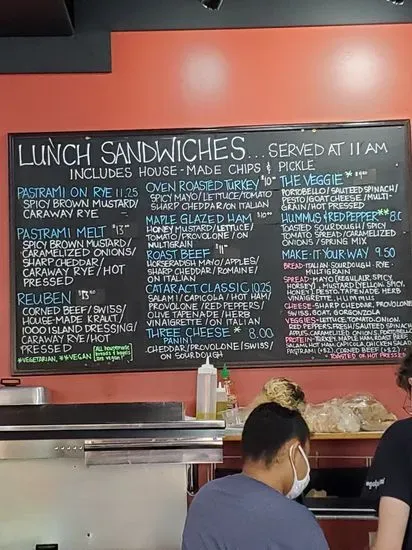 LUNCH SANDWICHES... SERVED AT 11 AM
INCLUDES HOUSE-MADE CHIPS & PICKLE
PASTRAMI ON RYE 11.25
SPICY BROWN MUSTARD/
CARAWAY RYE
PASTRAMI MELT
SPICY BROWN MUSTARD/
CARAMELIZED ONIONS/
SHARP CHEDDAR/
CARAWAY RYE/HOT
PRESSED
REUBEN
CORNED BEEF/SWISS/
HOUSE-MADE KRAUT/
1000 ISLAND DRESSING/
CARAWAY RYE/HOT
PRESSED
*VEGETARIAN, **VEGAN
ALL HOUSEMADE
breads & bagels
are vegan!
OVEN ROASTED TURKEY
SPICY MAYO/LETTUCE/TOMATO
SHARP CHEDDAR/ON ITALIAN
MAPLE GLAZED HAM
HONEY MUSTARD/LETTUCE/
TOMATO/PROVOLONE/ON
MULTIGRAIN
ROAST BEEF
HORSERADISH MAYO/APPLES/
SHARP CHEDDAR/ROMAINE/
ON ITALIAN
CATARACT CLASSIC 10.25
SALAMI/CAPICOLA/HOT HAM/
PROVOLONE/RED PEPPERS/
OLIVE TAPENADE/HERB
VINAIGRETTE/ON ITALIAN
THREE CHEESE* 8.00
PANINI
CHEDDAR/PROVOLONE/SWISS/
ON SOURDOUGH
THE VEGGIE*
PORTOBELLO/SAUTEED SPINACH/
PESTO/GOAT CHEESE/MULTI-
GRAIN/HOT PRESSED
HUMMUS & RED PEPPER**
TOASTED SOURDOUGH/SPICY
TOMATO SPREAD/CARAMELIZED
ONIONS/SPRING MIX
MAKE IT YOUR WAY 9.50
BREAD-ITALIAN, SOURDOUGH, RYE
MULTIGRAIN
SPREAD-MAYO (REGULAR, SPICY,
HORSEY), MUSTARD (YELLOW, SPICY,
HONEY), PESTO, TAPENADE, HERB
VINAIGRETTE, HUMMUS
CHEESE-SHARP CHEDDAR, PROVOLONE,
SWISS, GOAT, GORGONZOLA
VEGGIES-LETTUCE, TOMATO, ONION,
RED PEPPERS, PESTO/SAUTEED SPINACH,
APPLES, CARAMELIZED ONIONS, PORTOBELLO
PROTEIN-TURKEY, MAPLE HAM, ROAST BEEF,
SALAMI, HOT HAM, CAPICOLA, CHICKEN SALAD,
PASTRAMI CORNED BEEF
TOASTED OR HOT PRESSED